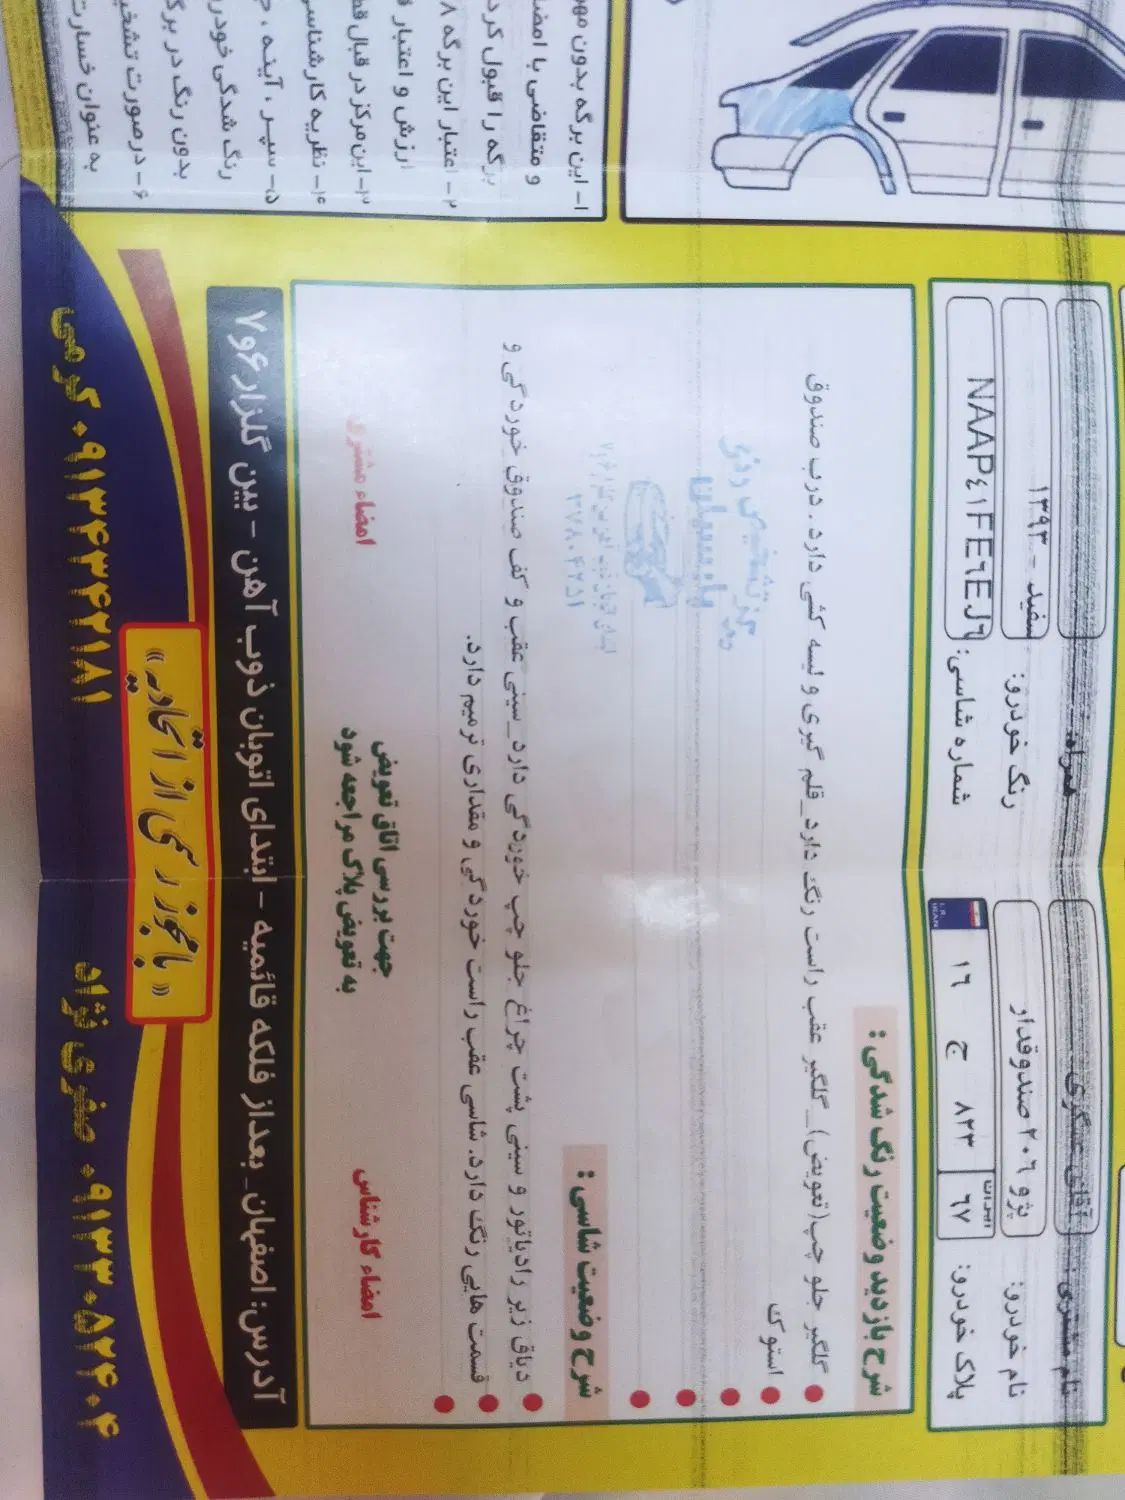 ۱- این برگه بدون مهر
و متقاضی با امضا
برگه را قبول کرد
۲- اعتبار این برگه ۴۸
ارزش و اعتبار
۳- این مرکز در قبال
۴- نظریه کارشناسی
۵- سپر، آینه،
رنگ شدگی خودرو
بدون رنگ در
۶- در صورت تشخیص
به عنوان خسارت
نام مشتری: آقای عسگری
همراه:
نام خودرو: پژو ۲۰۶ صندوقدار
رنگ خودرو: سفید - ۱۳۹۳
پلاک خودرو: ایران ۶۷ ۸۲۳ ج ۱۶
I.R. IRAN
شماره شاسی: NAAP۴۱FE۶EJ۶
شرح بازدید وضعیت رنگ شدگی:
گلگیر جلو چپ(تعویض)_گلگیر عقب راست رنگ دارد_قلم گیری و لیسه کشی دارد. درب صندوق
استوک
مرکز تشخیص رنگ
شرح وضعیت شاسی:
دیاق زیر رادیاتور و سینی پشت چراغ جلو چپ خوردگی دارد_سینی عقب و کف صندوق خوردگی و
قسمت هایی رنگ دارد. شاسی عقب راست خوردگی و مقداری ترمیم دارد.
جهت بررسی اتاق تعویض
به تعویض پلاک مراجعه شود
امضاء کارشناس
امضاء مشتری
آدرس: اصفهان_بعد از فلکه قائمیه - ابتدای اتوبان ذوب آهن - بین گلزار ۶ و ۷
«با مجوز رسمی از اتحادیه»
۰۹۱۳۳۰۸۲۴۰۴ صفری نژاد
۰۹۱۳۴۳۴۲۱۸۱ کرمی